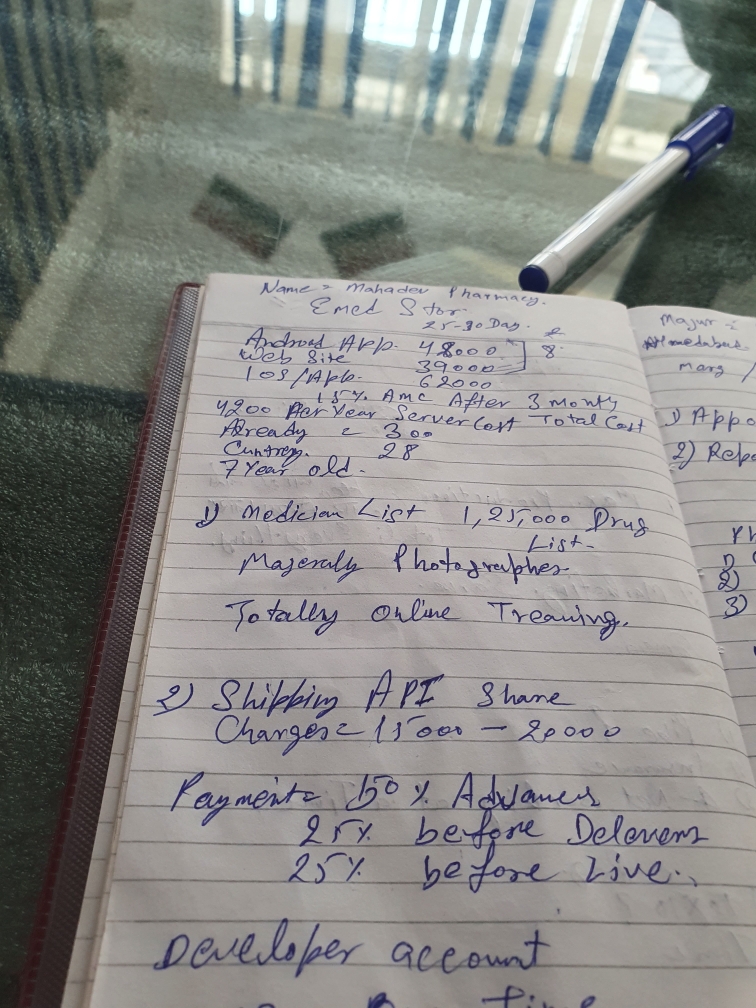 Name = Mahadev Pharmacy.
Emed Stor
25-30 Day.
Android App. 48000
Web Site 39000 8.
IOS/App. 62000
15% Amc After 3 Monty
4200 Per Year Server Cost Total Cost
Already = 300
Cuntrey. 28
7 Year old.
1) Medician List 1,25,000 Drug
List-
Majeraly Photographer
Totally online Treaning.
2) Shipping API Share
Charges = 15000 - 20000
Payment = 50% Advances
25% before Delevers
25% before Live.
Developer account
Time
Majur =
Ahmedabad
marg /
1) Appo
2) Repo
Ph
1)
2)
3)